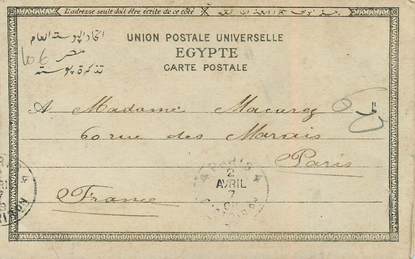 L'adresse seule doit être écrite de ce côté
UNION POSTALE UNIVERSELLE
EGYPTE
CARTE POSTALE
اتحاد البوستة العام
مصر
تذكرة بوسته
A. Madame Macurez
60 rue des Marais
Paris
France
PARIS
2
AVRIL